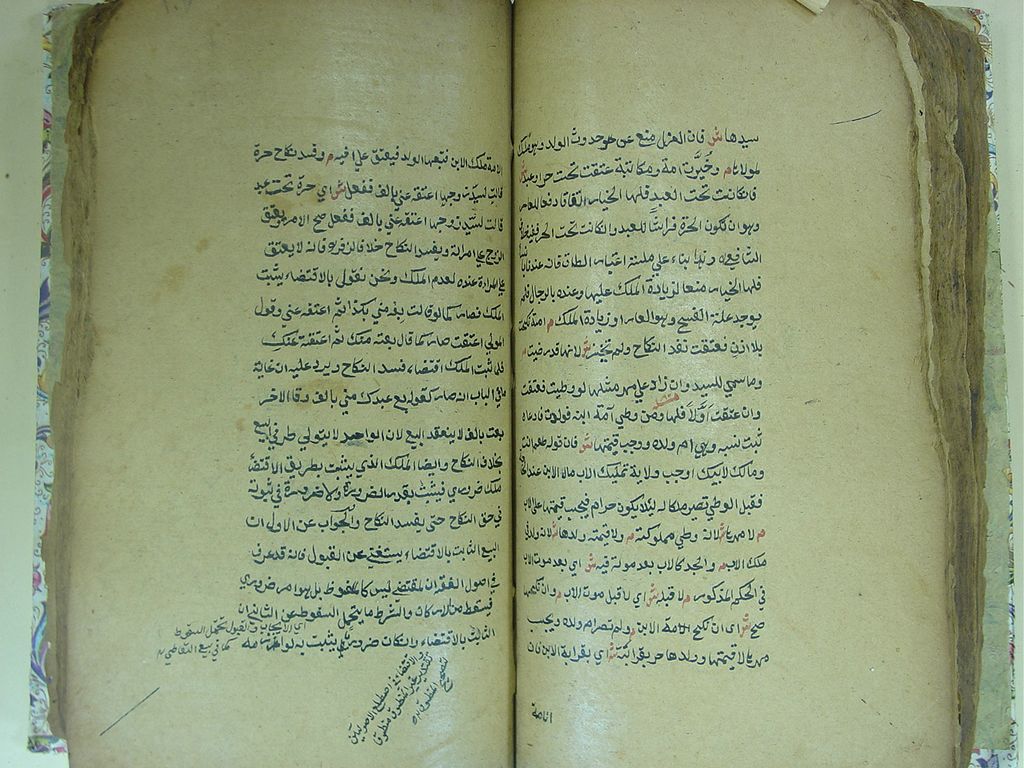 سيدها ش فان العزل منع عن حدوث الولد وهو ملك
لمولاها م وخيرت امة ومكاتبة عتقت تحت حر او عبد ش
فان كانت تحت العبد فلها الخيار اتفاقا دفعا للعار
وهو ان تكون الحرة فراشا للعبد وان كانت تحت الحر ففيه خلاف
الشافعي وهذا بناء على مسئلة اعتبار الطلاق فانه عندنا بالنساء
فلها الخيار منعا لزيادة الملك عليها وعنده بالرجال فلم
يوجد علة الفسخ وهو العار او زيادة الملك م امة نكحت
بلا اذن فعتقت نفذ النكاح ولم تخير ش لانها قد رضيت م
وما سمي للسيد وان زاد على مهر مثلها لو وطئت فعتقت
وان عتقت اولا فلها ومن وطي امة ابنه فولدت فادعاه
ثبت نسبه وهي ام ولده ووجب قيمتها ش فان قوله عم انت
ومالك لابيك اوجب ولاية تمليك الاب مال الابن عند الحاجة
فقبل الوطي تصير ملكا له لئلا يكون حرام فيجب قيمتها على الاب
م لا مهرها ش لانه وطي مملوكته م ولا قيمة ولدها ش لانه ولد في
ملك الاب م والجد كالاب بعد موته فيه ش اي بعد موت الاب
في الحكم المذكور م لا قبله ش اي لا قبل موت الاب م وان نكحها
صح ش اي ان نكح الامة الابن م ولم تصر ام ولده ويجب
مهرها لا قيمتها وولدها حر بقرابته ش اي بقرابة الابن فان
الامة
الامة ملك الابن فتبعها الولد فيعتق على اخيه م وفسد نكاح حرة
قالت لسيد زوجها اعتقه عني بالف ففعل ش اي حرة تحت عبد
قالت لسيد زوجها اعتقه عني بالف ففعل صح الامر ويعتق
الزوج على امراته ويفسد النكاح خلافا لزفر فانه لا يعتق
على المراة عنده لعدم الملك ونحن نقول بالاقتضاء يثبت
الملك فصار كما لو قالت بعه مني بكذا ثم اعتقه عني وقول
المولى اعتقت صار كما قال بعته منك ثم اعتقته عنك
فلما ثبت الملك اقتضاء فسد النكاح ويرد عليه ان غاية
ما في الباب انه صار كقوله بع عبدك مني بالف وقال الاخر
بعت بالف لا ينعقد البيع لان الواحد لا يتولى طرفي البيع
بخلاف النكاح وايضا الملك الذي يثبت بطريق الاقتضاء
ملك ضروري فيثبت بقدر الضرورة ولا ضرورة في ثبوته
في حق النكاح حتى يفسد النكاح والجواب عن الاول ان
البيع الثابت بالاقتضاء يستغني عن القبول فانه قد عرف
في اصول الفقه ان المقتضى ليس كالملفوظ بل هو امر ضروري
فسقط من الاركان والشرط ما يحتمل السقوط وعن الثاني ان
الثابت بالاقتضاء وان كان ضروريا يثبت به لوازمه
اي الايجاب والقبول يحتمل السقوط
كما في بيع التعاطي
والاقتضاء في اصطلاح الاصوليين
تقدير غير المنطوق منطوقا
لتصحيح المنطوق